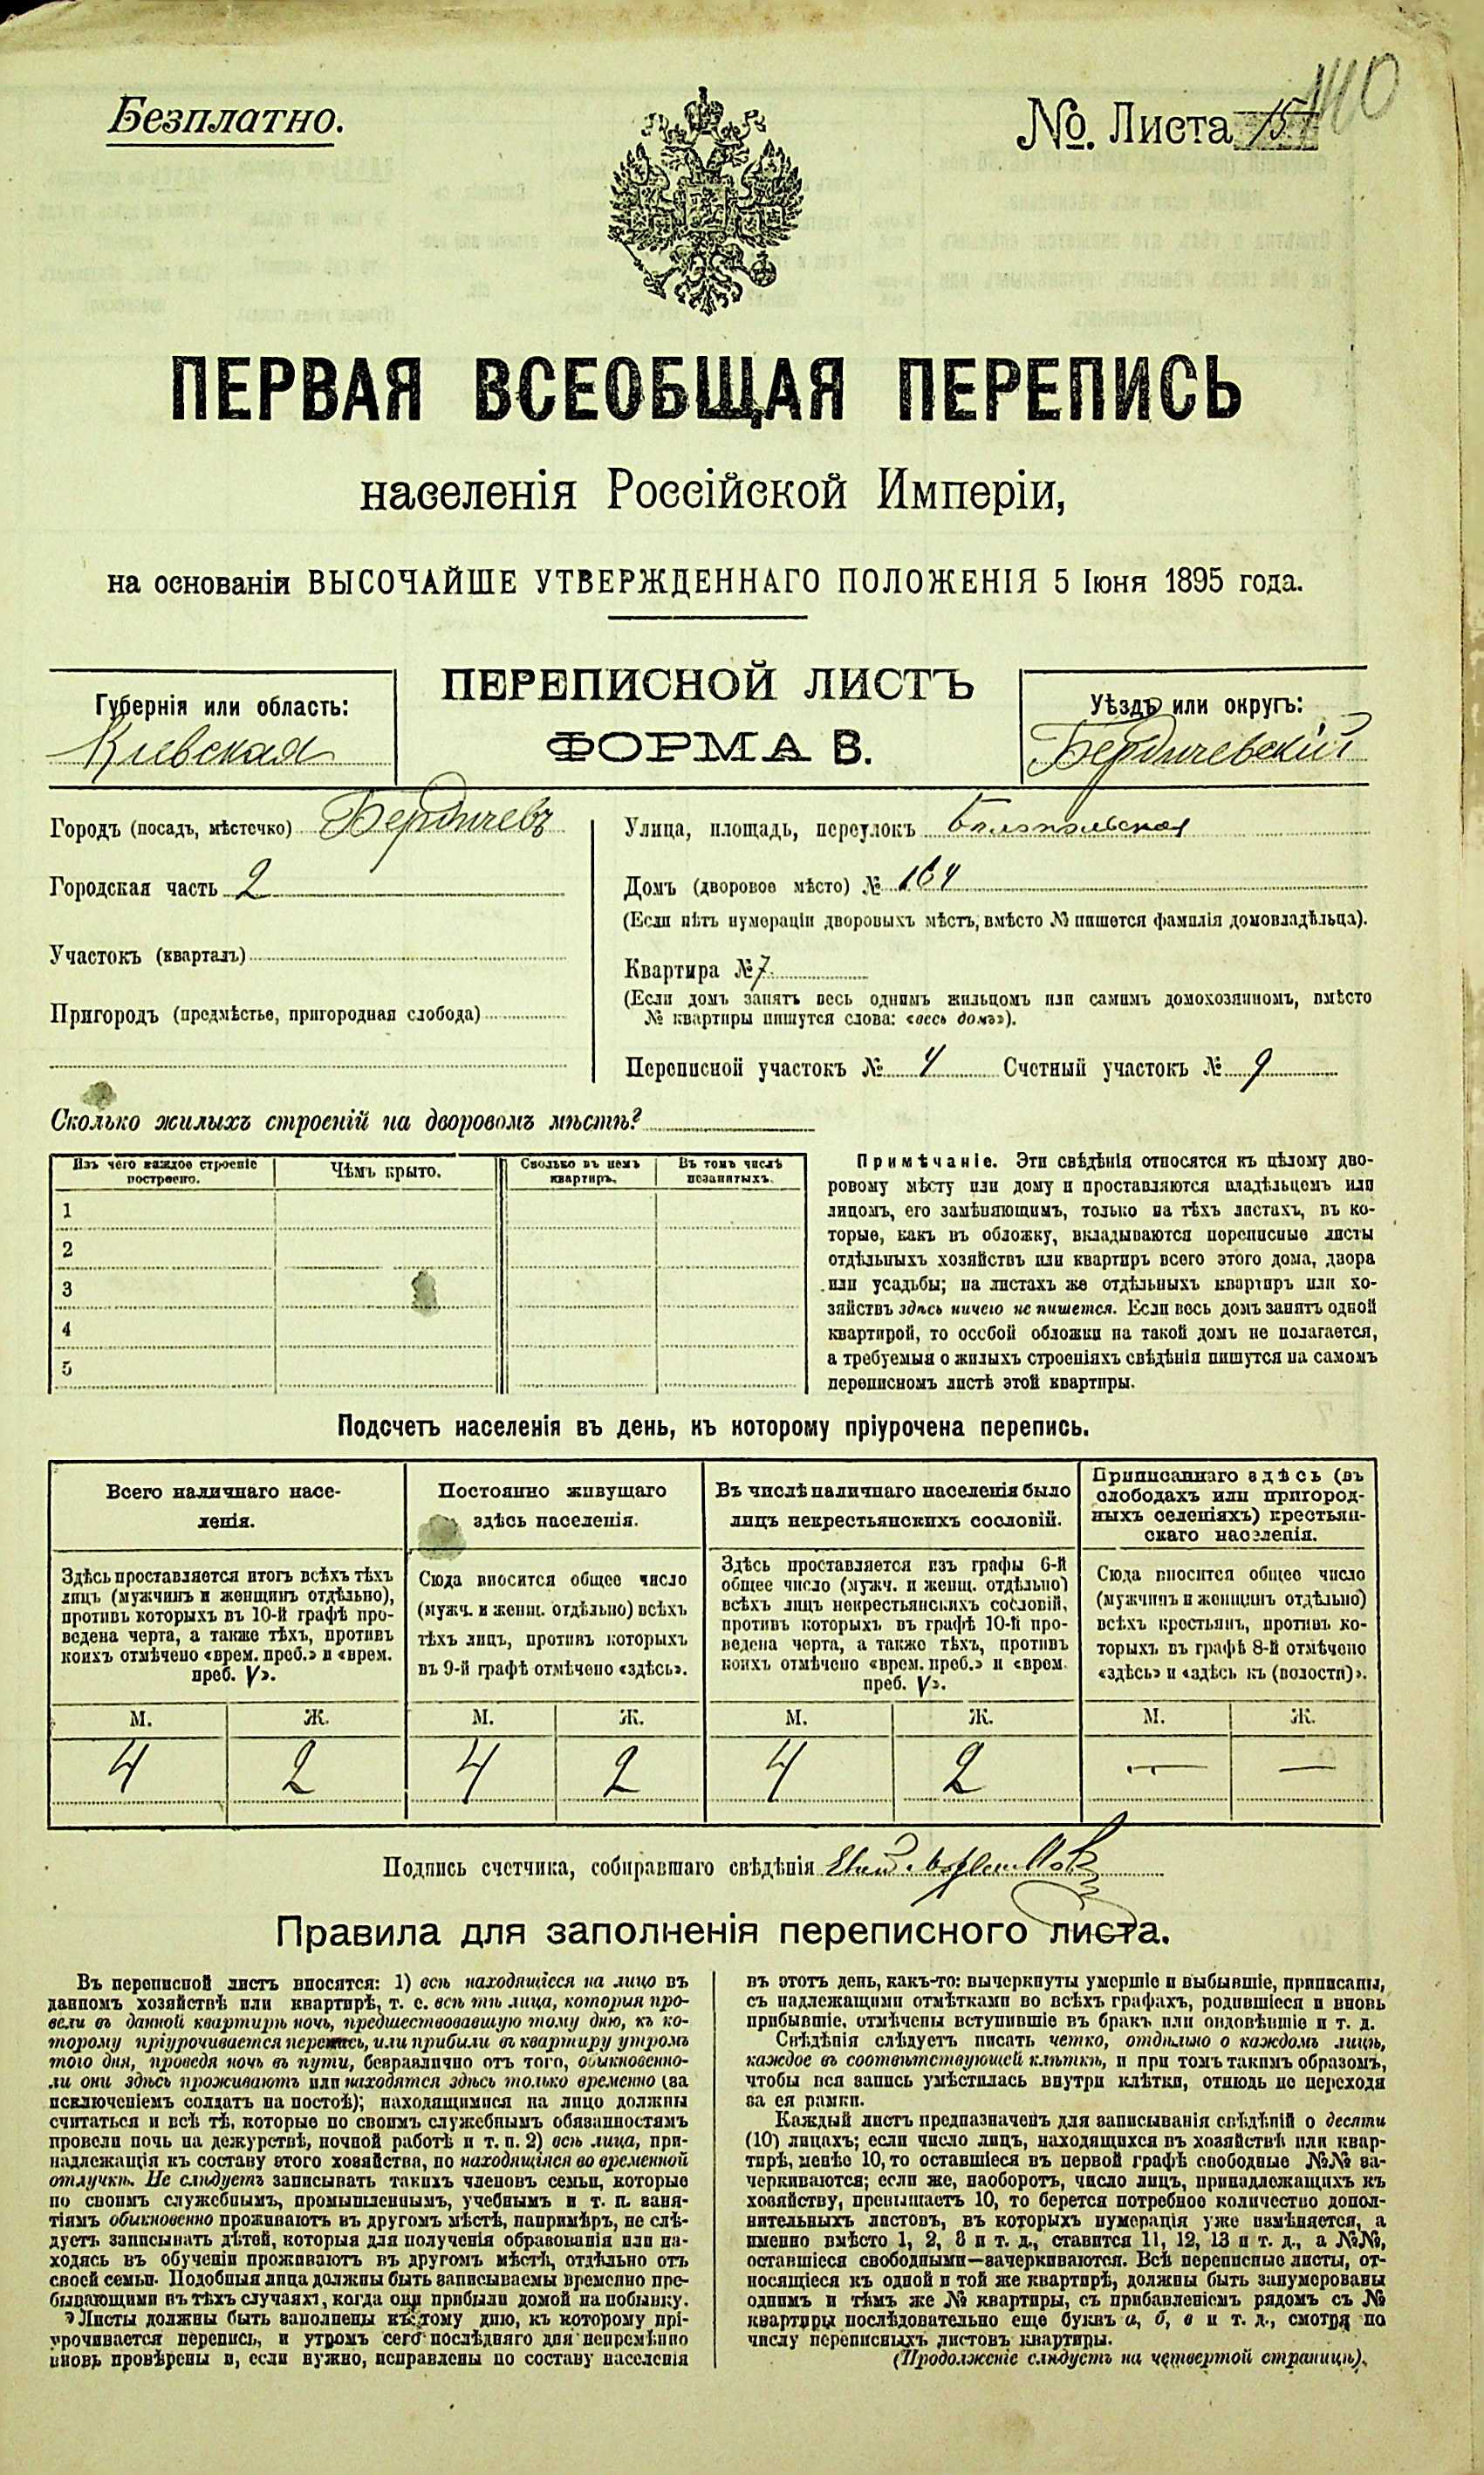 Безплатно.
№. Листа 15
140
ПЕРВАЯ ВСЕОБЩАЯ ПЕРЕПИСЬ
населенія Россійской Имперіи,
на основаніи ВЫСОЧАЙШЕ УТВЕРЖДЕННАГО ПОЛОЖЕНІЯ 5 Іюня 1895 года.
Губернія или область:
Кіевская
ПЕРЕПИСНОЙ ЛИСТЪ
ФОРМА В.
Уѣздъ или округъ:
Бердичевскій
Городъ (посадъ, мѣстечко) Бердичевъ
Городская часть 2
Участокъ (кварталъ)
Пригородъ (предмѣстье, пригородная слобода)
Улица, площадь, переулокъ Бѣлопольская
Домъ (дворовое мѣсто) № 164
(Если нѣтъ нумераціи дворовыхъ мѣстъ, вмѣсто № пишется фамилія домовладѣльца).
Квартира № 7
(Если домъ занятъ весь однимъ жильцомъ или самимъ домохозяиномъ, вмѣсто
№ квартиры пишутся слова: «весь домъ»).
Переписной участокъ № 4 Счетный участокъ № 9
Сколько жилыхъ строеній на дворовомъ мѣстѣ?
Изъ чего каждое строеніе
построено.
Чѣмъ крыто.
Сколько въ немъ
квартиръ.
Въ томъ числѣ
незанятыхъ.
1
2
3
4
5
Примѣчаніе. Эти свѣдѣнія относятся къ цѣлому дво-
ровому мѣсту или дому и проставляются владѣльцемъ или
лицомъ, его замѣняющимъ, только на тѣхъ листахъ, въ ко-
торые, какъ въ обложку, вкладываются переписные листы
отдѣльныхъ хозяйствъ или квартиръ всего этого дома, двора
или усадьбы; на листахъ же отдѣльныхъ квартиръ или хо-
зяйствъ здѣсь ничего не пишется. Если весь домъ занятъ одной
квартирой, то особой обложки на такой домъ не полагается,
а требуемыя о жилыхъ строеніяхъ свѣдѣнія пишутся на самомъ
переписномъ листѣ этой квартиры.
Подсчетъ населенія въ день, къ которому пріурочена перепись.
Всего наличнаго насе-
ленія.
Здѣсь проставляется итогъ всѣхъ тѣхъ
лицъ (мужчинъ и женщинъ отдѣльно),
противъ которыхъ въ 10-й графѣ про-
ведена черта, а также тѣхъ, противъ
коихъ отмѣчено «врем. преб.» и «врем.
преб. V».
Постоянно живущаго
здѣсь населенія.
Сюда вносится общее число
(мужч. и женщ. отдѣльно) всѣхъ
тѣхъ лицъ, противъ которыхъ
въ 9-й графѣ отмѣчено «здѣсь».
Въ числѣ наличнаго населенія было
лицъ некрестьянскихъ сословій.
Здѣсь проставляется изъ графы 6-й
общее число (мужч. и женщ. отдѣльно)
всѣхъ лицъ некрестьянскихъ сословій,
противъ которыхъ въ графѣ 10-й про-
ведена черта, а также тѣхъ, противъ
коихъ отмѣчено «врем. преб.» и «врем.
преб. V».
Приписаннаго здѣсь (въ
слободахъ или пригород-
ныхъ селеніяхъ) крестьян-
скаго населенія.
Сюда вносится общее число
(мужчинъ и женщинъ отдѣльно)
всѣхъ крестьянъ, противъ ко-
торыхъ въ графѣ 8-й отмѣчено
«здѣсь» и «здѣсь къ (волости)».
М. Ж. М. Ж. М. Ж. М. Ж.
4 2 4 2 4 2 — —
Подпись счетчика, собиравшаго свѣдѣнія
Правила для заполненія переписного листа.
Въ переписной листъ вносятся: 1) всѣ находящіеся на лицо въ
данномъ хозяйствѣ или квартирѣ, т. е. всѣ тѣ лица, которыя про-
вели въ данной квартирѣ ночь, предшествовавшую тому дню, къ ко-
торому пріурочивается перепись, или прибыли въ квартиру утромъ
того дня, проведя ночь въ пути, безразлично отъ того, обыкновенно-
ли они здѣсь проживаютъ или находятся здѣсь только временно (за
исключеніемъ солдатъ на постоѣ); находящимися на лицо должны
считаться и всѣ тѣ, которые по своимъ служебнымъ обязанностямъ
провели ночь на дежурствѣ, ночной работѣ и т. п. 2) всѣ лица, при-
надлежащія къ составу этого хозяйства, но находящіяся во временной
отлучкѣ. Не слѣдуетъ записывать такихъ членовъ семьи, которые
по своимъ служебнымъ, промышленнымъ, учебнымъ и т. п. заня-
тіямъ обыкновенно проживаютъ въ другомъ мѣстѣ, напримѣръ, не слѣ-
дуетъ записывать дѣтей, которыя для полученія образованія или на-
ходясь въ обученіи проживаютъ въ другомъ мѣстѣ, отдѣльно отъ
своей семьи. Подобныя лица должны быть записываемы временно пре-
бывающими въ тѣхъ случаяхъ, когда они прибыли домой на побывку.
Листы должны быть заполнены къ тому дню, къ которому прі-
урочивается перепись, и утромъ сего послѣдняго дня непремѣнно
вновь провѣрены и, если нужно, исправлены по составу населенія
въ этотъ день, какъ-то: вычеркнуты умершіе и выбывшіе, приписаны,
съ надлежащими отмѣтками во всѣхъ графахъ, родившіеся и вновь
прибывшіе, отмѣчены вступившіе въ бракъ или овдовѣвшіе и т. д.
Свѣдѣнія слѣдуетъ писать четко, отдѣльно о каждомъ лицѣ,
каждое въ соотвѣтствующей клѣткѣ, и при томъ такимъ образомъ,
чтобы вся запись умѣстилась внутри клѣтки, отнюдь не переходя
за ея рамки.
Каждый листъ предназначенъ для записыванія свѣдѣній о десяти
(10) лицахъ; если число лицъ, находящихся въ хозяйствѣ или квар-
тирѣ, менѣе 10, то оставшіеся въ первой графѣ свободные №№ за-
черкиваются; если же, наоборотъ, число лицъ, принадлежащихъ къ
хозяйству, превышаетъ 10, то берется потребное количество допол-
нительныхъ листовъ, въ которыхъ нумерація уже измѣняется, а
именно вмѣсто 1, 2, 3 и т. д., ставится 11, 12, 13 и т. д., а №№,
оставшіеся свободными—зачеркиваются. Всѣ переписные листы, от-
носящіеся къ одной и той же квартирѣ, должны быть занумерованы
однимъ и тѣмъ же № квартиры, съ прибавленіемъ рядомъ съ №
квартиры послѣдовательно еще буквъ а, б, в и т. д., смотря по
числу переписныхъ листовъ квартиры.
(Продолженіе слѣдуетъ на четвертой страницѣ).